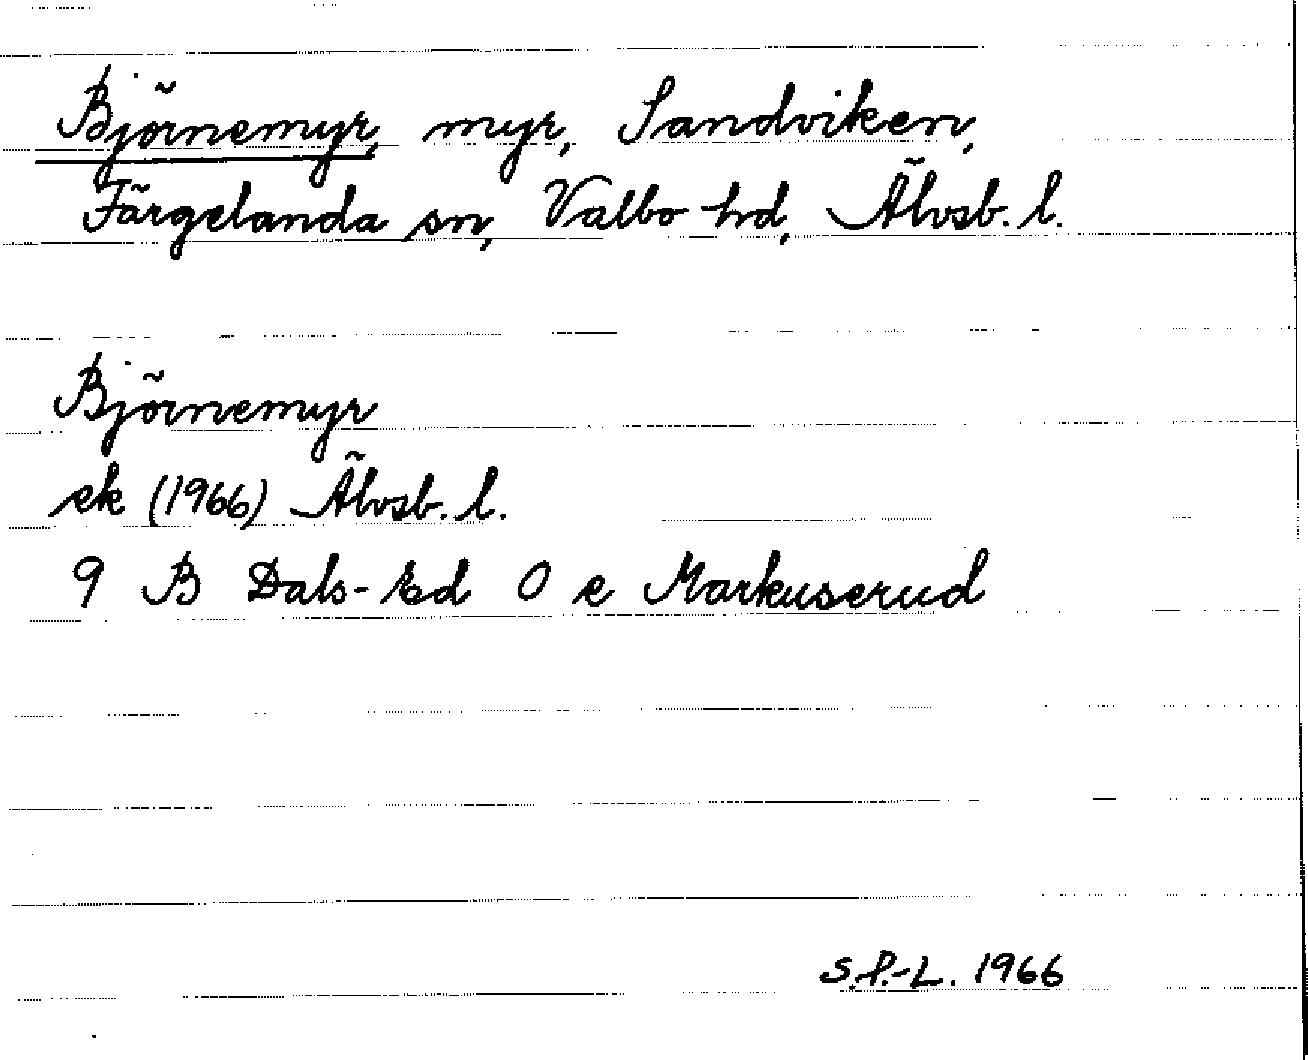 Björnemyr, myr, Sandviken,
Färgelanda sn, Valbo hd, Älvsb. l.
Björnemyr
ek (1966) Älvsb. l.
9 B Dals-Ed O e Markuserud
S.P.-L. 1966